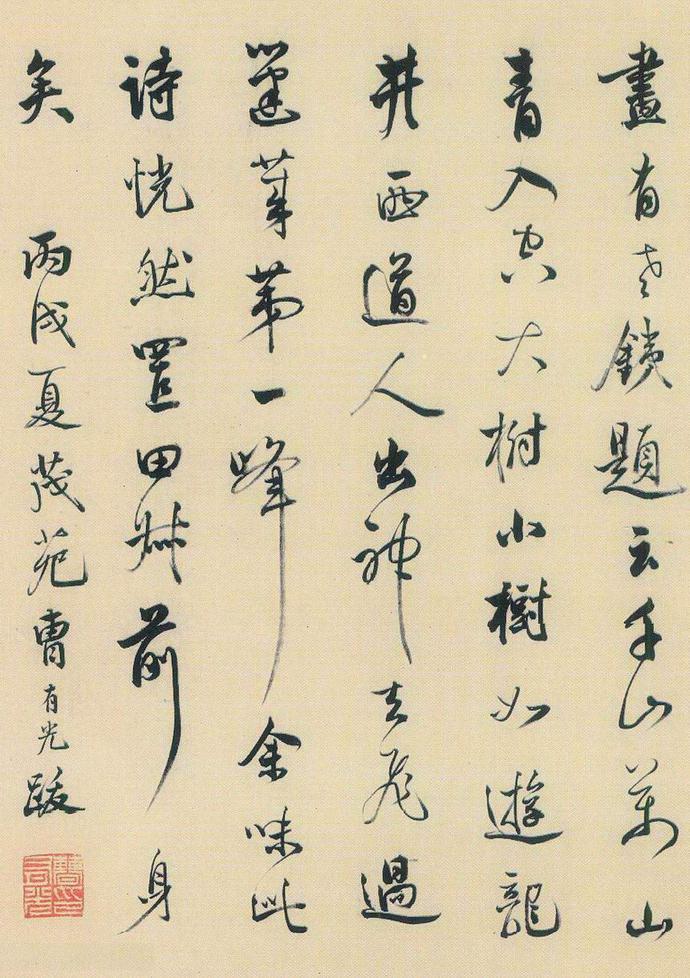 畫有老鐵題云千山萬山
青入空大樹小樹如遊龍
井西道人出神去飛過
蓬萊第一峰余味此
詩恍然置田叔前身
矣 丙戌夏茂苑曹有光跋
曹印有光